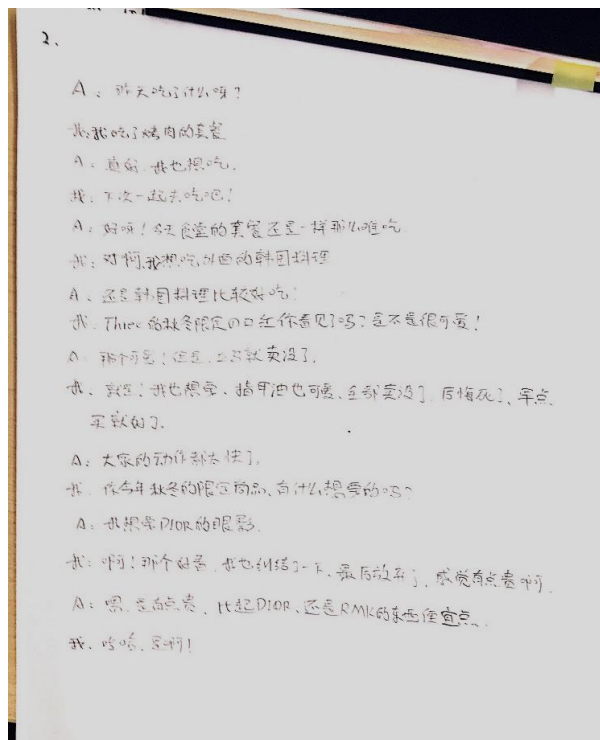 2、
A：昨天吃了什么呀？
我：我吃了烤肉的套餐
A：真好，我也想吃．
我：下次一起去吃吧！
A：好呀！今天食堂的套餐还是一样那么难吃．
我：对啊，我想吃外面的韩国料理
A：还是韩国料理比较好吃！
我：Three的秋冬限定の口红你看见了吗？是不是很可爱！
A：那个可爱！但是，马上就卖没了．
我：就是！我也想要、指甲油也可爱、全部卖没了、后悔死了、早点
买就好了．
A：大家的动作都太快了。
我：你今年秋冬的限定商品、有什么想要的吗？
A：我想要DIOR的眼影．
我：啊！那个好看、我也纠结了一下、最后放弃了、感觉有点贵啊．
A：嗯、是有点贵、比起DIOR、还是RMK的东西便宜点．
我：哈哈、是啊！